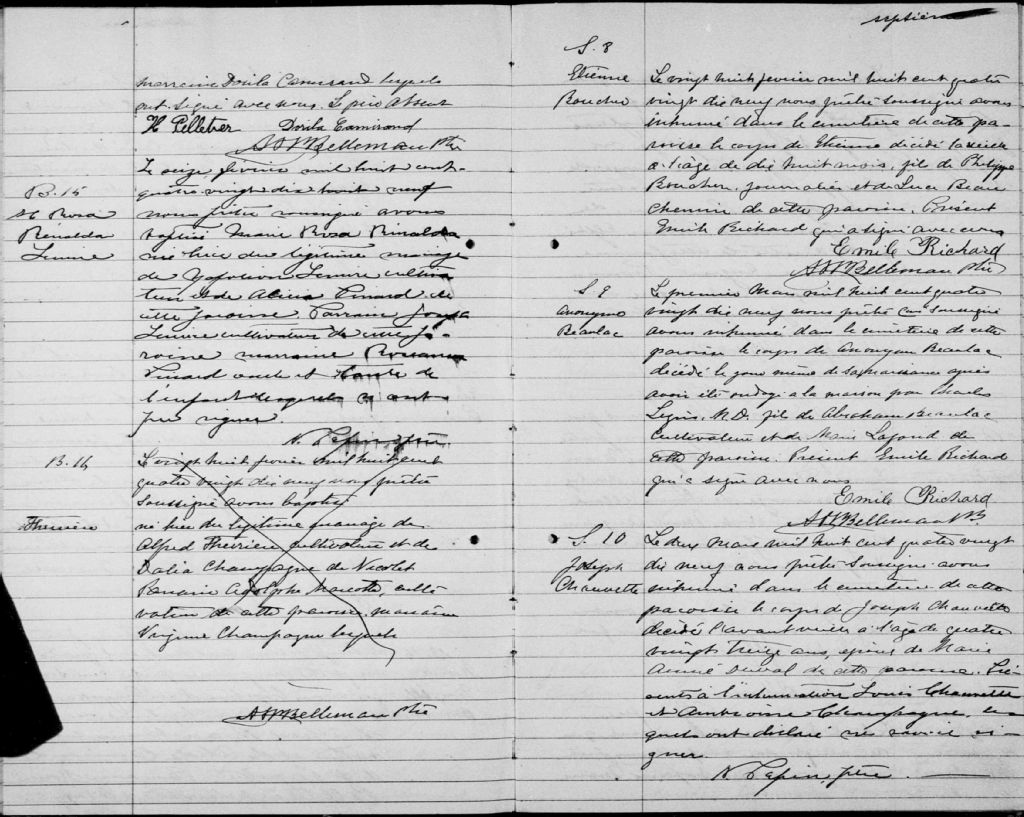 marraine Dorila Camirand lesquels
ont signé avec nous. Le père absent
H Pelletier Dorila Camirand
Bellemare Ptre
B. 15
M Rosa
Rinalda
Lemire
Le seize février mil huit cent
quatre vingt dix huit neuf
nous prêtre soussigné avons
baptisé Marie Rosa Rinalda
née hier du légitime mariage
de Napoléon Lemire cultiva
teur et de Alicia Pinard de
cette paroisse. Parrain Joseph
Lemire cultivateur de cette pa-
roisse marraine Rosanna
Pinard oncle et tante de
l'enfant lesquels n'ont
pu signer.
N. Papin, ptre.
B. 16
Therrien
Le vingt huit février mil huit cent
quatre vingt dix neuf nous prêtre
soussigné avons baptisé
né hier du légitime mariage de
Alfred Therrien cultivateur et de
Dalia Champagne de Nicolet
Parrain Adolphe Marcotte, culti
vateur de cette paroisse, marraine
Virginie Champagne lesquels
Bellemare Ptre
septième
S. 8
Etienne
Boucher
Le vingt huit février mil huit cent quatre
vingt dix neuf nous prêtre soussigné avons
inhumé dans le cimetière de cette pa-
roisse le corps de Etienne décédé la veille
à l'âge de dix huit mois, fils de Philippe
Boucher, journalier et de Luce Beau
chemin de cette paroisse. Présent
Emile Richard qui a signé avec nous
Emile Richard
Bellemare Ptre
S. 9
Anonyme
Beaulac
Le premier Mars mil huit cent quatre
vingt dix neuf nous prêtre curé soussigné
avons inhumé dans le cimetière de cette
paroisse le corps de Anonyme Beaulac
décédé le jour même de sa naissance après
avoir été ondoyé à la maison par Charles
M.D. fils de Abraham Beaulac
Cultivateur et de Marie Lafond de
cette paroisse. Présent Emile Richard
qui a signé avec nous
Emile Richard
Bellemare Ptr
S. 10
Joseph
Chauvette
Le deux Mars mil huit cent quatre vingt
dix neuf nous prêtre soussigné avons
inhumé dans le cimetière de cette
paroisse le corps de Joseph Chauvette
décédé l'avant veille à l'âge de quatre
vingt treize ans, époux de Marie
Duval de cette paroisse. Pré-
sents à l'inhumation Louis Chauvette
et Ambroise Champagne, les
quels ont déclaré ne savoir si-
gner.
N. Papin, ptre.